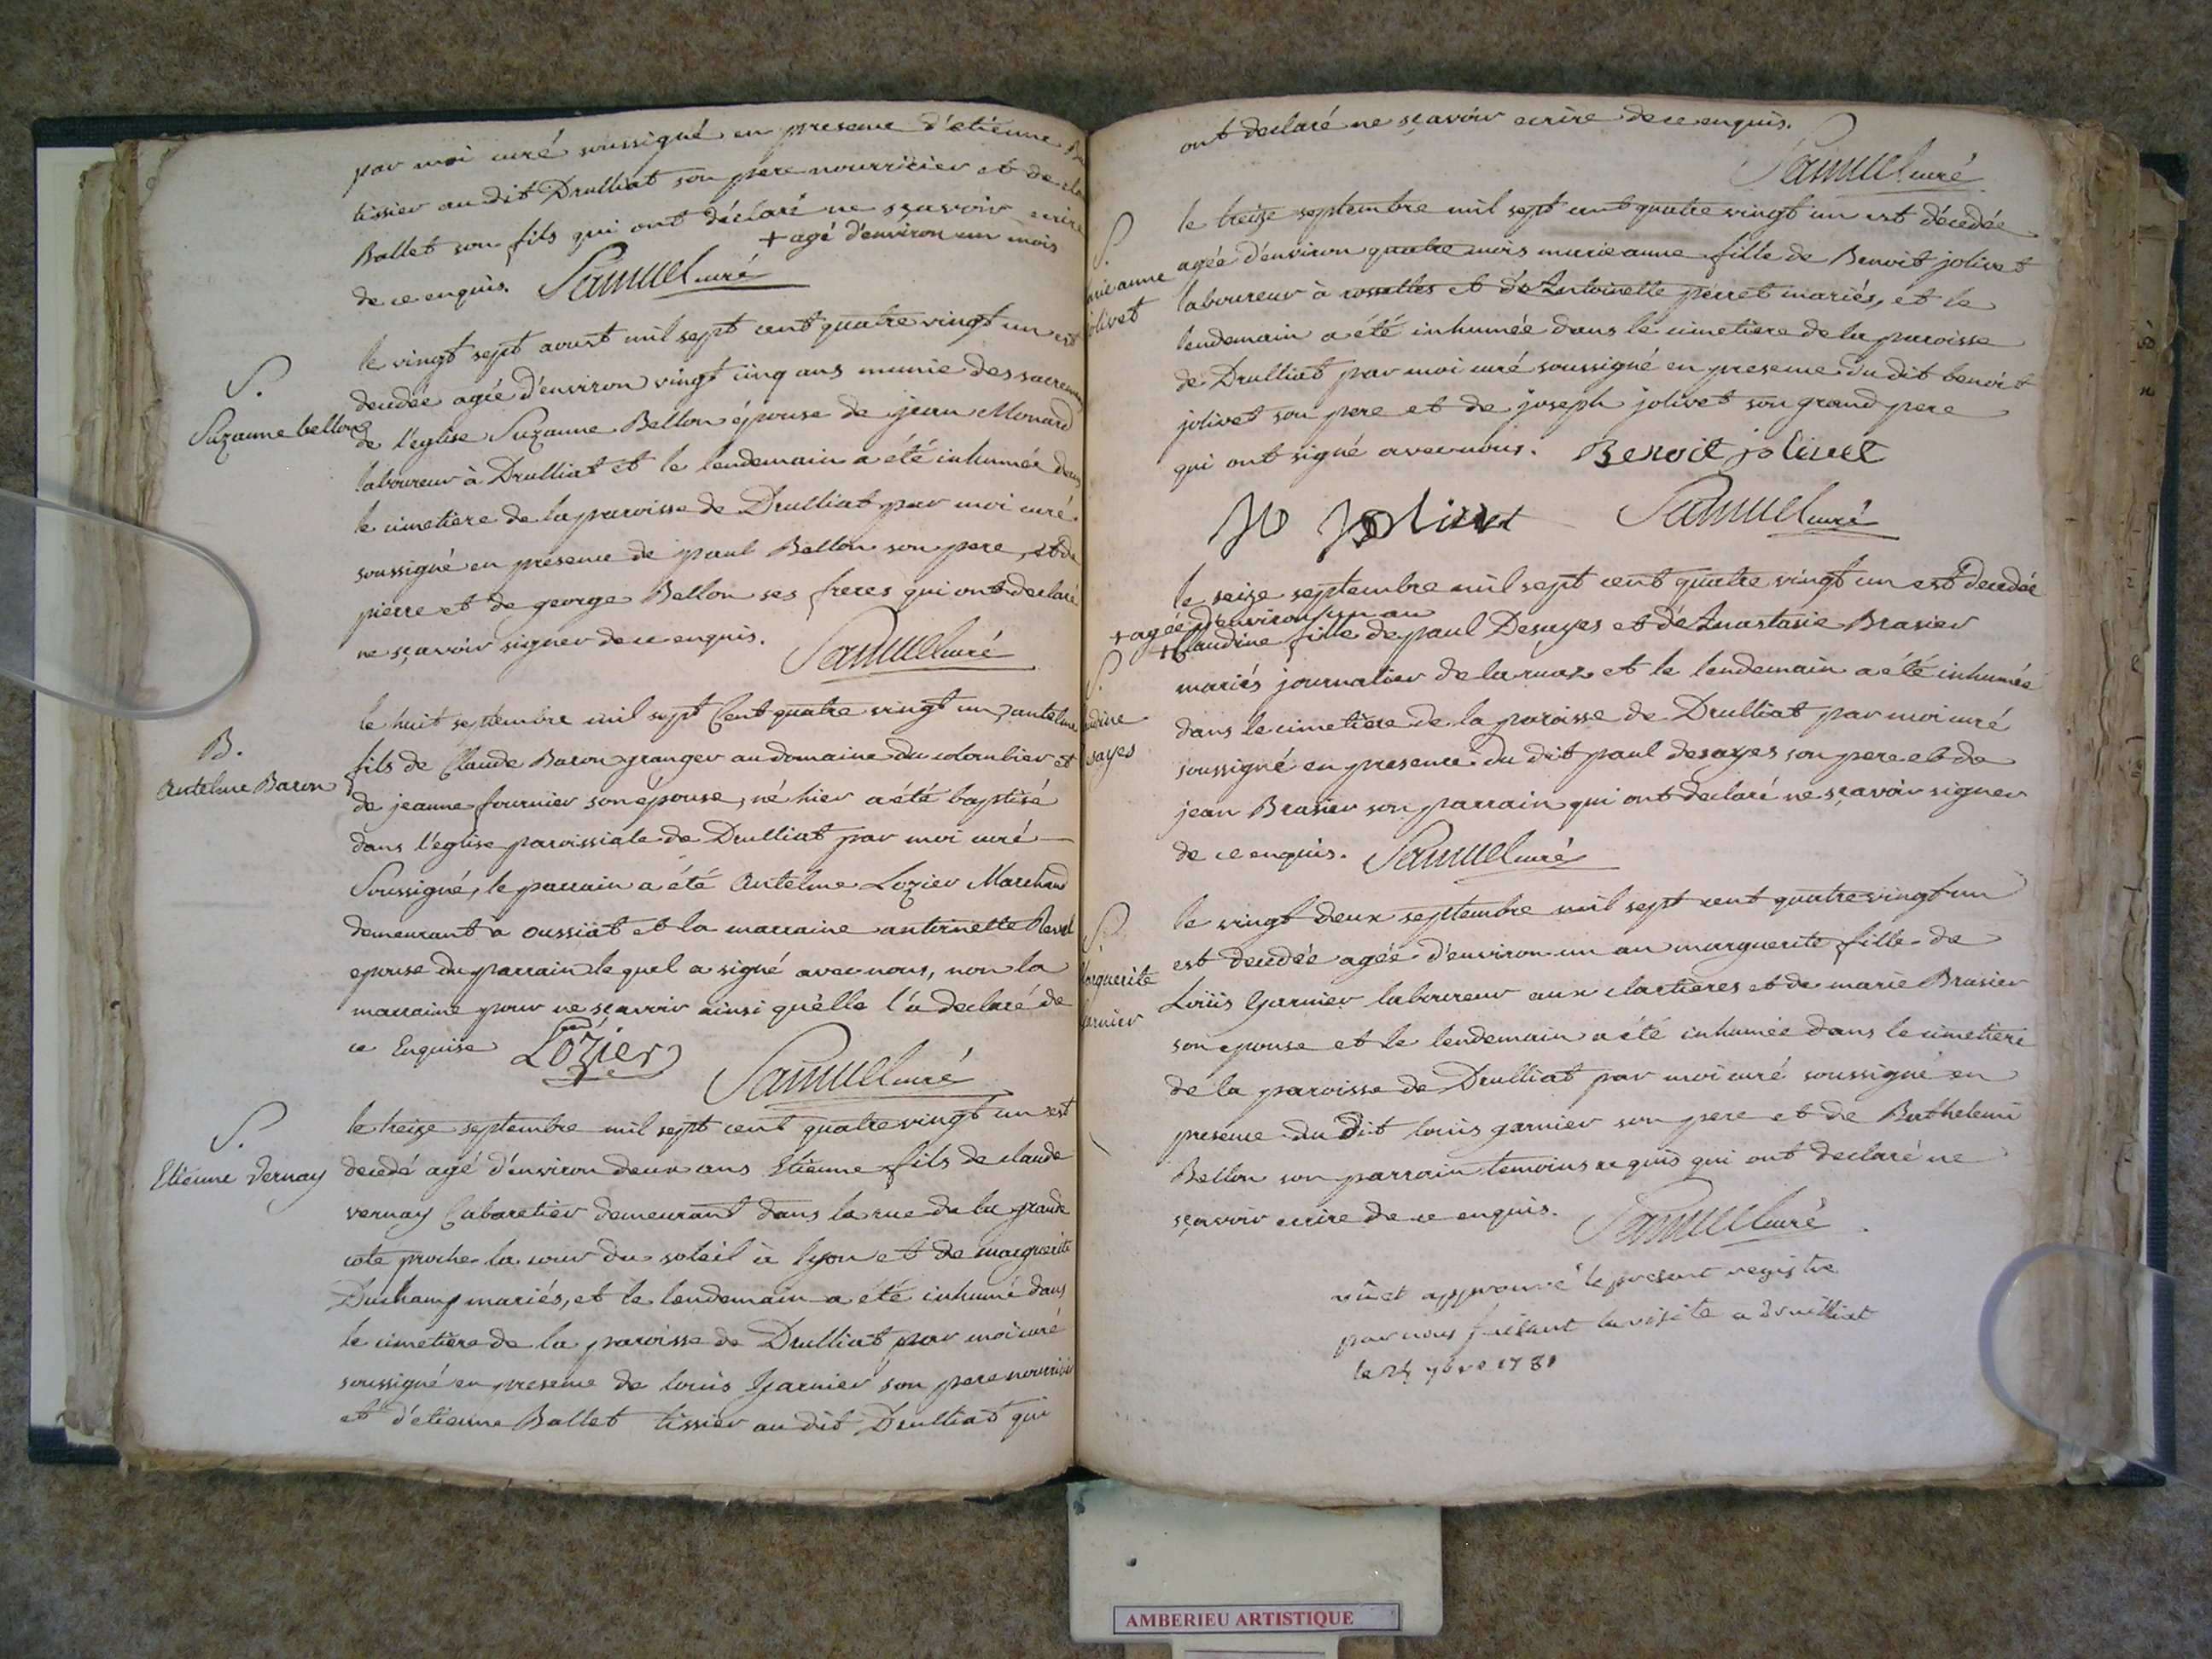 par moi curé soussigné en presence d'etienne
tissier au dit Drulliat son pere nourricier et de
Ballet son fils qui ont déclaré ne sçavoir ecrire
+ agé d'environ un mois
de ce enquis. Samuel curé
S.
Suzanne bellon
le vingt sept aoust mil sept cent quatre vingt un est
decedée agée d'environ vingt cinq ans munie des sacremens
de l'eglise Suzanne Bellon épouse de jean Monard
laboureur à Drulliat et le lendemain a été inhumée dans
le cimetiere de la paroisse de Drulliat par moi curé
soussigné en presence de paul Bellon son pere, et de
pierre et de george Bellon ses freres qui ont declaré
ne sçavoir signer de ce enquis. Samuel curé
B.
Antelme Baron
le huit septembre mil sept Cent quatre vingt un, antelme
fils de Claude Baron granger au domaine du colombier et
de jeanne fournier son épouse, né hier a été baptisé
dans l'eglise paroissiale de Drulliat par moi curé
Soussigné, le parrain a été Antelme Lozier Marchand
demeurant a oussiat et la marraine antoinette Revel
epouse du parrain le quel a signé avec nous, non la
marraine pour ne sçavoir ainsi qu'elle l'a declaré de
ce Enquise Lozier
Samuel curé
S.
Etienne Vernay
le treize septembre mil sept cent quatre vingt un est
decedé agé d'environ deux ans Etienne fils de claude
vernay Cabaretier demeurant dans la rue de la grande
cote proche la cour du soleil à lyon et de marguerite
Duchamp mariés, et le lendemain a été inhumé dans
le cimetiere de la paroisse de Drulliat par moi curé
soussigné en presence de louis Garnier son pere nourricier
et d'etienne Ballet tissier au dit Drulliat qui
ont declaré ne sçavoir ecrire de ce enquis.
Samuel curé
S.
arie anne
jolivet
le treize septembre mil sept cent quatre vingt un est décedée
agée d'environ quatre mois marie anne fille de Benoit jolivet
laboureur à rosettes et d'Antoinette perret mariés, et le
lendemain a été inhumée dans le cimetiere de la paroisse
de Drulliat par moi curé soussigné en presence du dit benoit
jolivet son pere et de joseph jolivet son grand pere
qui ont signé avec nous. Benoit jolivet
Jo Jolivet Samuel curé
le seize septembre mil sept cent quatre vingt un est decedée
+ agée d'environ un an
+ Claudine fille de paul Desayes et d'Anastasie Brasier
S.
udine
sayes
mariés journalier de la ruaz et le lendemain a été inhumée
dans le cimetiere de la paroisse de Drulliat par moi curé
soussigné en presence du dit paul desayes son pere et de
jean Brasier son parrain qui ont declaré ne sçavoir signer
de ce enquis. Samuel curé
S.
arguerite
arnier
le vingt deux septembre mil sept cent quatre vingt un
est decedée agée d'environ un an marguerite fille de
Loüis Garnier laboureur aux clartieres et de marie Brasier
son epouse et le lendemain a été inhumée dans le cimetiere
de la paroisse de Drulliat par moi curé soussigné en
presence du Dit louis garnier son pere et de Barthelemi
Bellon son parrain temoins requis qui ont declaré ne
sçavoir ecrire de ce enquis. Samuel curé
vû et approuvé le present registre
par nous faisant la visite a Druilliat
le 24 7bre 1781
AMBERIEU ARTISTIQUE